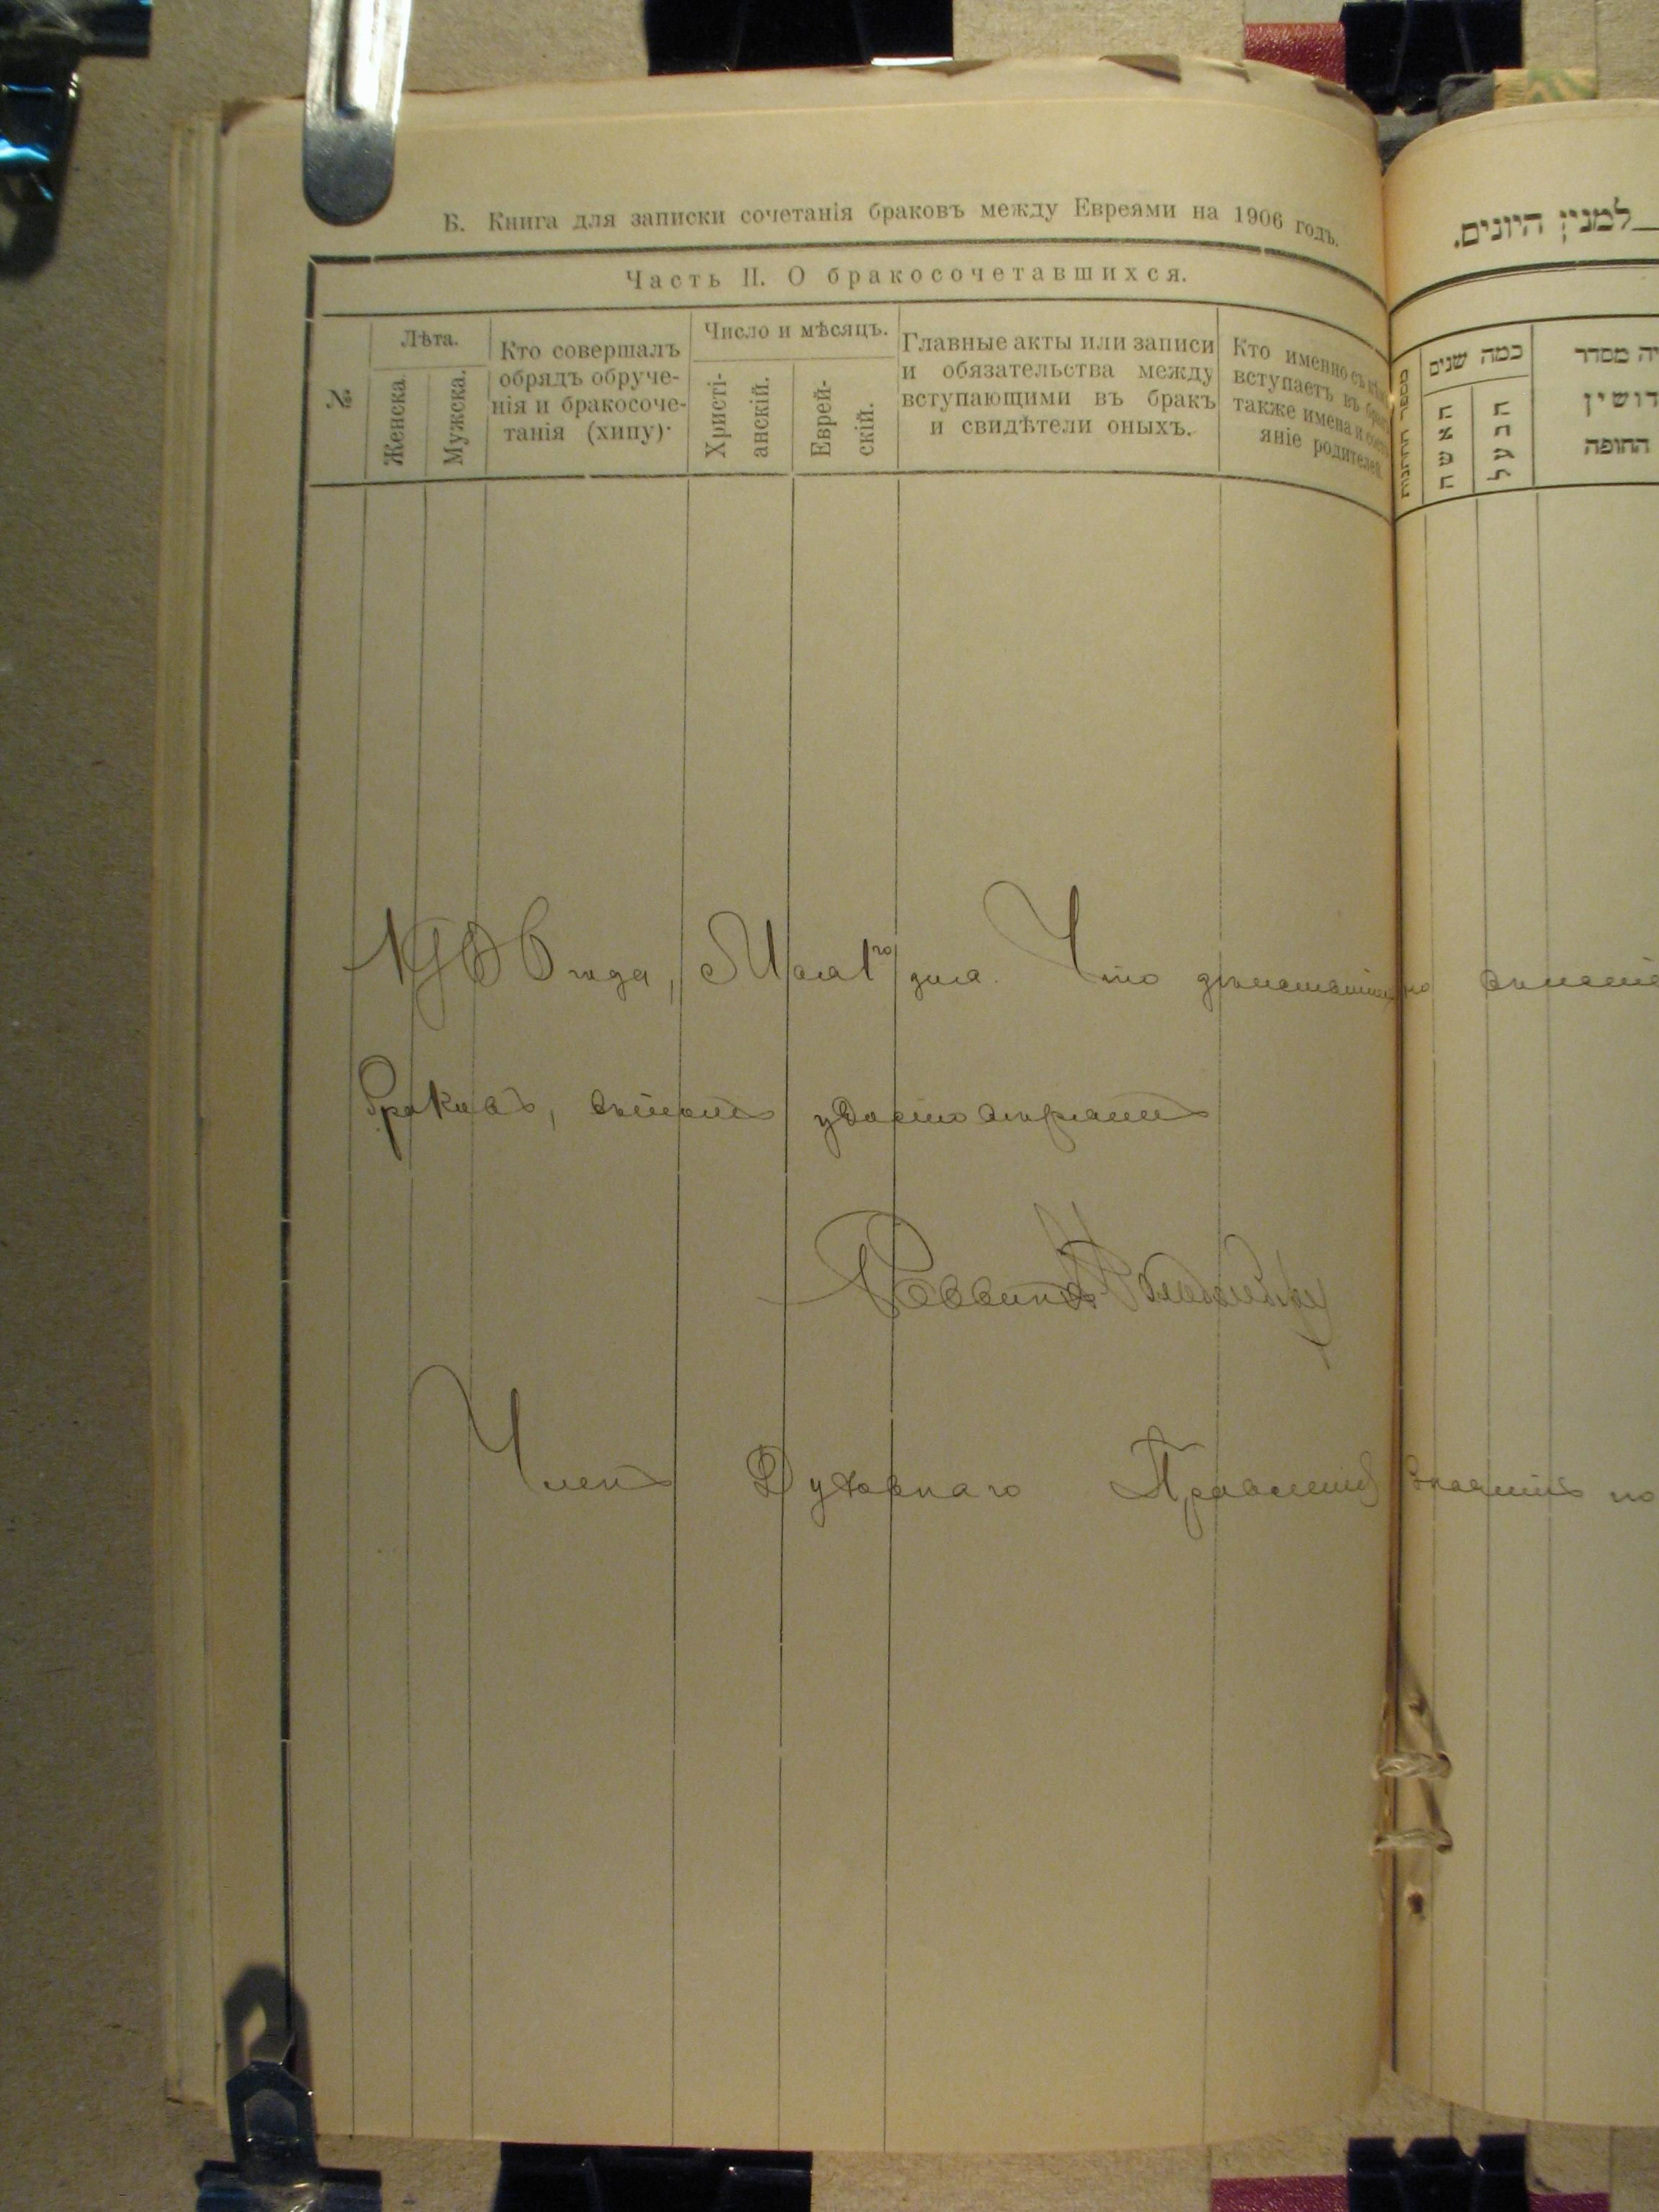 Б. Книга для записки сочетанія браковъ между Евреями на 1906 годъ.
Часть II. О бракосочетавшихся.
№
Лѣта.
Женска
Мужска.
Кто совершалъ
обрядъ обруче-
нія и бракосоче-
танія (хипу)·
Число и мѣсяцъ.
Христі-
анскій.
Еврей-
скій.
Главные акты или записи
и обязательства между
вступающими въ бракъ
и свидѣтели оныхъ.
Кто именно съ кѣмъ
вступаетъ въ бракъ
также имена и состо-
яніе родителей.
1906 года, Мая 1го дня. Что дѣйствительно
браковъ, удостовѣряетъ
Раввинъ
Членъ Духовнаго Правленія
למנין היונים.
מספר החתנות
כמה שנים
האשה
הבעל
יה מסדר
דושין
החופה